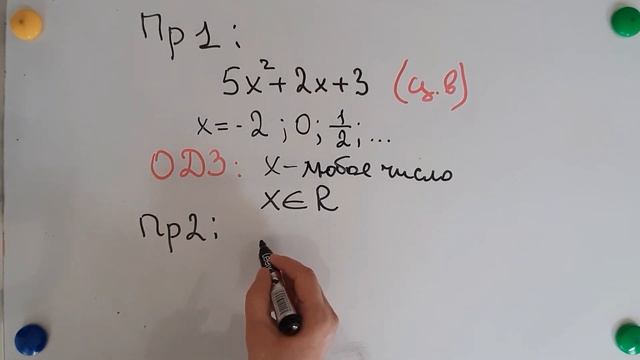 Пр1:
5x²+2x+3 (ц.в)
x=-2; 0; 1/2; ...
ОДЗ: x-любое число
x∈R
Пр2: